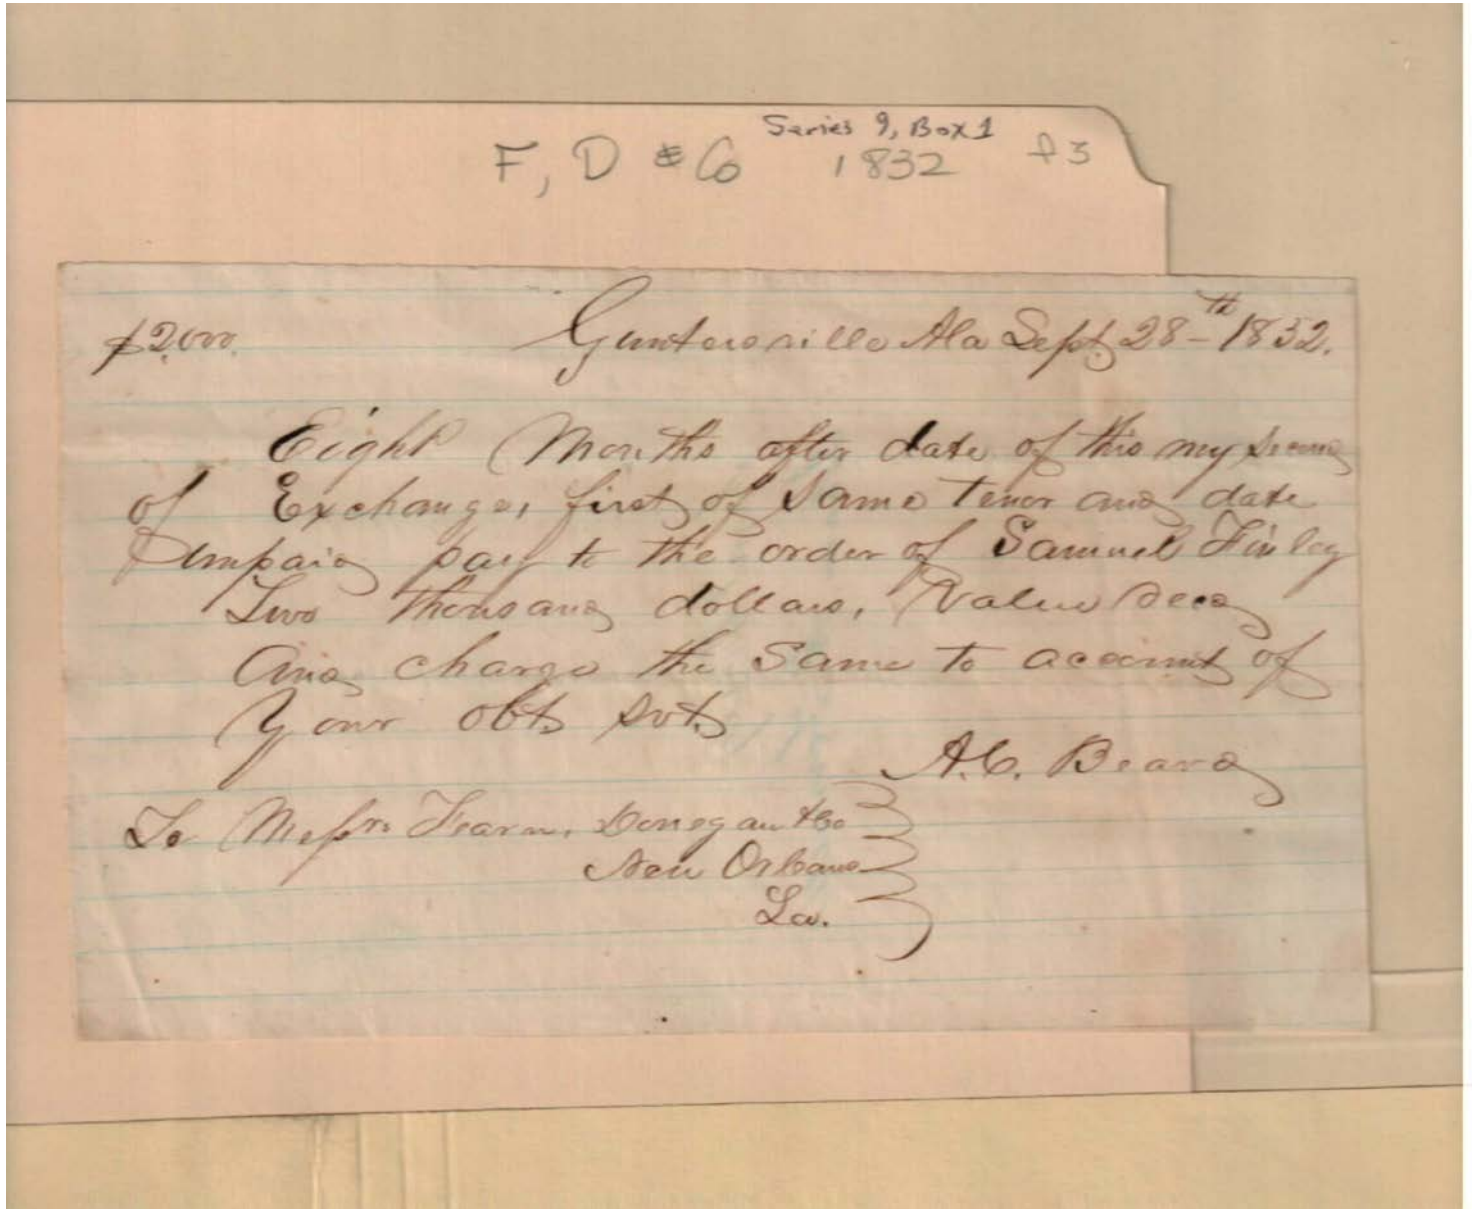 Series 9, Box 1
F, D & Co 1832 f3
$2,000. Guntersville Ala Sept 28th 1832.
Eight Months after date of this my second
of Exchange, first of same tenor and date
unpaid pay to the order of Samuel Finley
Two thousand dollars, Value Recd
And charge the same to account of
Your obt. svt.
A.C. Beard
To Messrs Fearn, Donegan & Co
New Orleans
La.